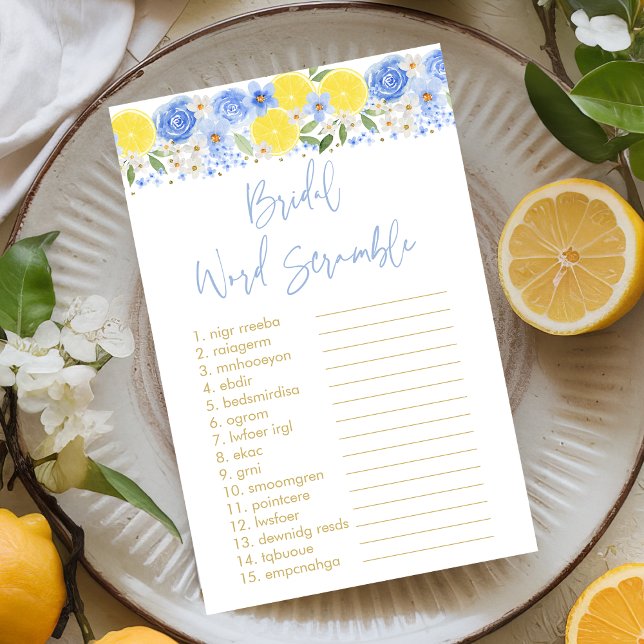 Bridal
Word Scramble
1. nigr rreeba
2. raiagerm
3. mnhooeyon
4. ebdir
5. bedsmirdisa
6. ogrom
7. lwfoer irgl
8. ekac
9. grni
10. smoomgren
11. pointcere
12. lwsfoer
13. dewnidg resds
14. tqbuoue
15. empcnahga